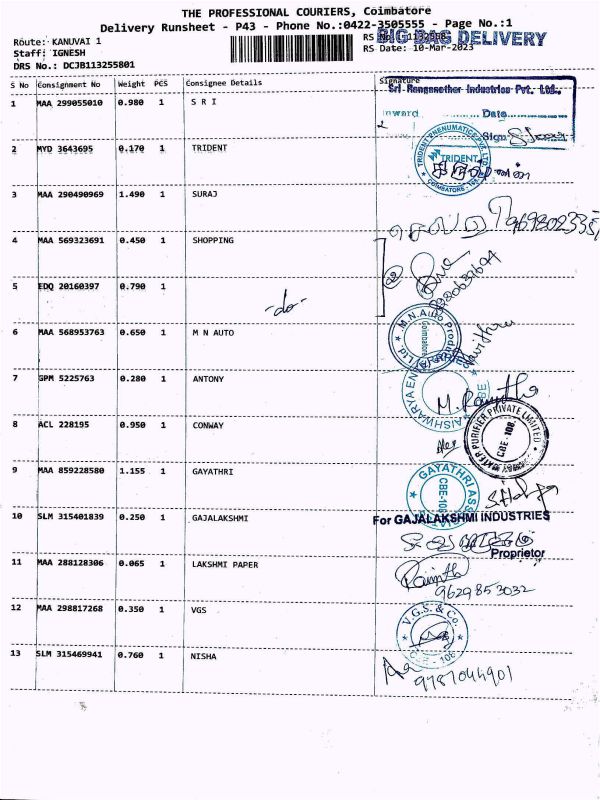 THE PROFESSIONAL COURIERS, Coimbatore
Delivery Runsheet - P43 - Phone No.:0422-3505555 - Page No.:1
Route: KANUVAI 1
Staff: IGNESH
DRS No.: DCJB113255801
RS
BIG BAG DELIVERY
RS Date: 10-Mar-2023
S No Consignment No Weight PCS Consignee Details Signature
1 MAA 299055010 0.980 1 S R I
Sri Ranganathar Industries Pvt. Ltd.,
Inward Date
Sign
2 MYD 3643695 0.170 1 TRIDENT
TRIDENT PNEUMATICS PVT LTD
TRIDENT
COIMBATORE - 108
3 MAA 290490969 1.490 1 SURAJ
4 MAA 569323691 0.450 1 SHOPPING
5 EDQ 20160397 0.790 1
-do-
6 MAA 568953763 0.650 1 M N AUTO
M.N.Auto
Coimbatore
7 GPM 5225763 0.280 1 ANTONY
AISHWARYA
8 ACL 228195 0.950 1 CONWAY
WATER PURIFIER PRIVATE LIMITED
CBE - 108.
9 MAA 859228580 1.155 1 GAYATHRI
GAYATHRI
CBE-108
10 SLM 315401839 0.250 1 GAJALAKSHMI
For GAJALAKSHMI INDUSTRIES
Proprietor
11 MAA 288128306 0.065 1 LAKSHMI PAPER
9629853032
12 MAA 298817268 0.350 1 VGS
V.G.S. & Co.
CBE - 108
13 SLM 315469941 0.760 1 NISHA
9787044901